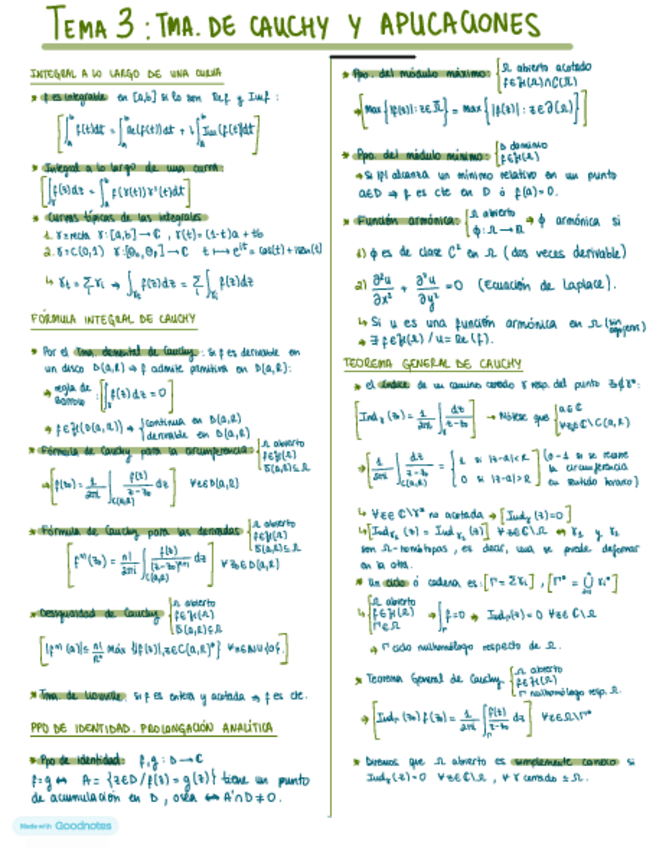 TEMA 3: TMA. DE CAUCHY Y APLICACIONES
INTEGRAL A LO LARGO DE UNA CURVA
* f es integrable en [a,b] si lo son Re f y Im f :
[∫_a^b f(t)dt = ∫_a^b Re(f(t))dt + i ∫_a^b Im(f(t))dt]
* Integral a lo largo de una curva
[∫_γ f(z)dz = ∫_a^b f(γ(t))γ'(t)dt]
* Curvas típicas de las integrales
1. γ=recta γ:[a,b]→ℂ, γ(t)=(1-t)a + tb
2. γ=C(0,1) γ:[θ₀,θ₁]→ℂ t↦e^{it} = cos(t)+isen(t)
FÓRMULA INTEGRAL DE CAUCHY
* Por el Tma. elemental de Cauchy: Si f es derivable en
un disco D(a,R) → f admite primitiva en D(a,R):
→ regla de Barrow: [∫ f(z)dz = 0]
→ f∈H(D(a,R)) → {continua en D(a,R)
derivable en D(a,R)
* Fórmula de Cauchy para la circunferencia: {Ω abierto
f∈H(Ω)
D̅(a,R)⊆Ω
→ [f(z₀) = 1/2πi ∫_{C(a,R)} f(z)/(z-z₀) dz] ∀z∈D(a,R)
* Fórmula de Cauchy para las derivadas {Ω abierto
f∈H(Ω)
D̅(a,R)⊆Ω
[fⁿ⁾(z₀) = n!/2πi ∫_{C(a,R)} f(z)/(z-z₀)^{n+1} dz] ∀z₀∈D(a,R)
* Desigualdad de Cauchy {Ω abierto
f∈H(Ω)
D̅(a,R)⊆Ω
[|fⁿ⁾(a)| ≤ n!/Rⁿ máx {|f(z)|, z∈C(a,R)*} ∀n∈ℕ∪{0}.]
* Tma. de Liouville: Si f es entera y acotada → f es cte.
PPO DE IDENTIDAD. PROLONGACIÓN ANALÍTICA
* Ppo de identidad: f,g : D→ℂ
f=g ↔ A = {z∈D / f(z) = g(z)} tiene un punto
de acumulación en D, o sea ↔ A'∩D ≠ ∅.
Made with Goodnotes
* Ppo. del módulo máximo: {Ω abierto acotado
f∈H(Ω)∩C(Ω̅)
→ [max{|f(z)|: z∈Ω̅} = max{|f(z)|: z∈∂(Ω)}]
* Ppo. del módulo mínimo: {D dominio
f∈H(Ω)
→ Si |f| alcanza un mínimo relativo en un punto
a∈D → f es cte en D ó f(a)=0.
* Función armónica: {Ω abierto
ϕ:Ω→ℝ → ϕ armónica si
1) ϕ es de clase C² en Ω (dos veces derivable)
2) ∂²u/∂x² + ∂²u/∂y² = 0 (Ecuación de Laplace).
↳ Si u es una función armónica en Ω (sin agujeros)
→ ∃ f∈H(Ω) / u = Re(f).
TEOREMA GENERAL DE CAUCHY
* el índice de un camino cerrado γ resp. del punto z₀∉γ*:
[Ind_γ(z₀) = 1/2πi ∫_γ dz/(z-z₀)] → Nótese que {a∈ℂ
∀z∈ℂ\C(a,R)
→ [1/2πi ∫_{C(a,R)} dz/(z-z₀) = {1 si |z-a|<R
0 si |z-a|>R] (o -1 si se recorre la circunferencia en sentido horario)
↳ ∀z∈ℂ\γ* no acotada → [Ind_γ(z)=0]
↳ [Ind_γ₁(z) = Ind_γ₂(z)] ∀z∈ℂ\Ω ↔ γ₁ y γ₂
son Ω-homótopas, es decir, una se puede deformar
en la otra.
* Un ciclo ó cadena es: [Γ = Σγi], [Γ* = ∪γi*]
↳ {Ω abierto
f∈H(Ω)
Γ⊆Ω → ∫_Γ f=0 → Ind_Γ(z)=0 ∀z∈ℂ\Ω
→ Γ ciclo nulhomólogo respecto de Ω.
* Teorema General de Cauchy. {Ω abierto
f∈H(Ω)
Γ nulhomólogo resp. Ω.
→ [Ind_Γ(z₀) f(z₀) = 1/2πi ∫_Γ f(z)/(z-z₀) dz] ∀z∈Ω\Γ*
* Diremos que Ω abierto es simplemente conexo si
Ind_γ(z)=0 ∀z∈ℂ\Ω, ∀γ cerrado ⊆ Ω.